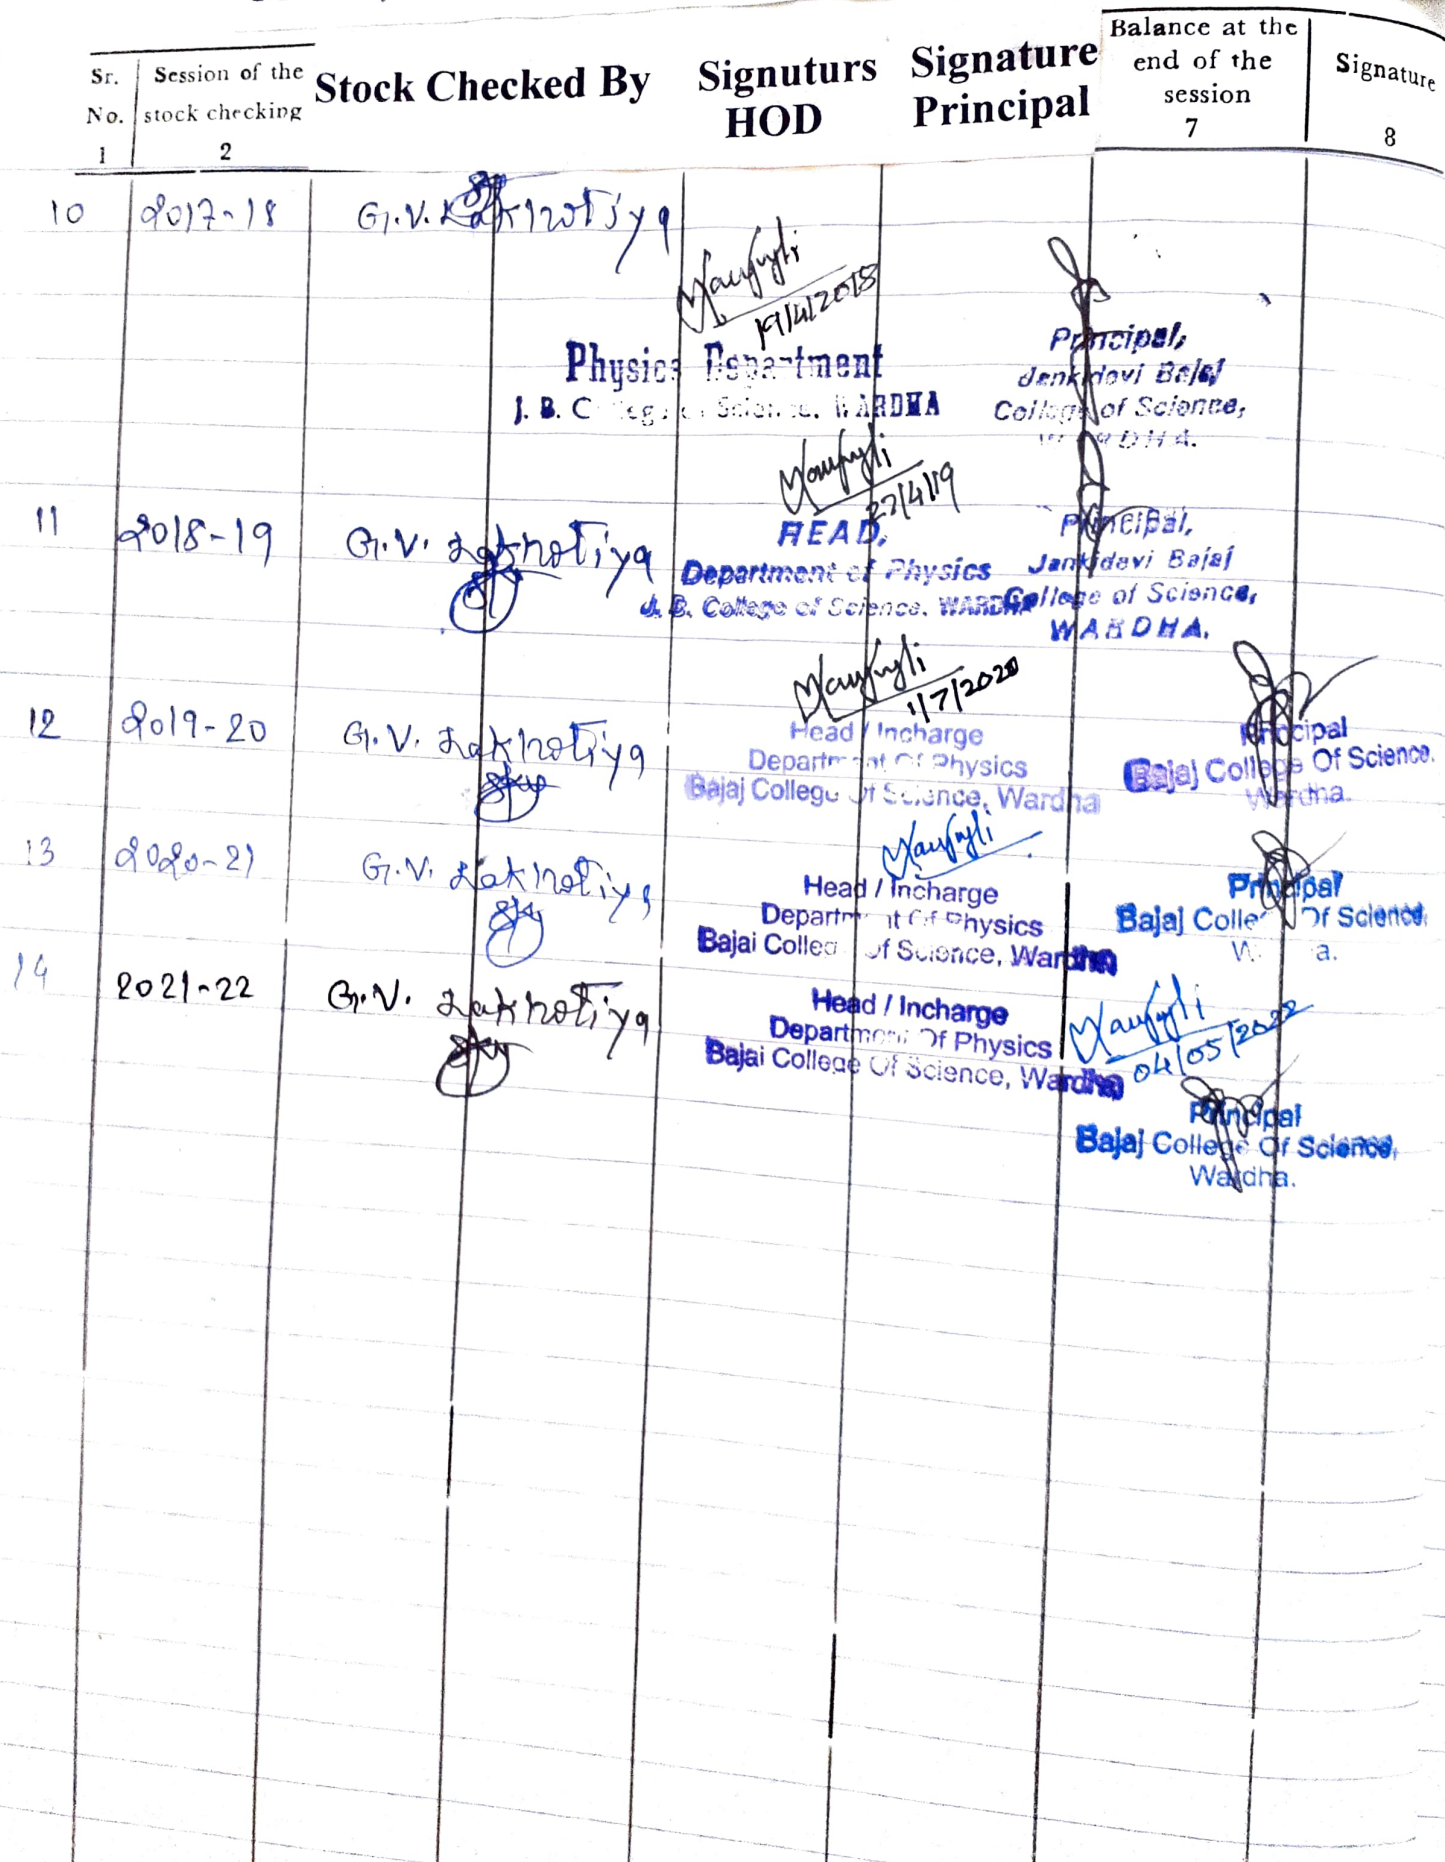 Sr. No. Session of the stock checking Stock Checked By Signuturs HOD Signature Principal Balance at the end of the session Signature
1 2 7 8
10 2017-18 G.V. Lakhotiya
19/4/2018
Physics Department
J. B. College of Science, WARDHA
Principal,
Jankidevi Bajaj
College of Science,
WARDHA.
11 2018-19 G.V. Lakhotiya
27/4/19
HEAD,
Department of Physics
J. B. College of Science, WARDHA
Principal,
Jankidevi Bajaj
College of Science,
WARDHA.
12 2019-20 G.V. Lakhotiya
1/7/2020
Head / Incharge
Department Of Physics
Bajaj College Of Science, Wardha
Principal
Bajaj College Of Science,
Wardha.
13 2020-21 G.V. Lakhotiya
Head / Incharge
Department Of Physics
Bajaj College Of Science, Wardha
Principal
Bajaj College Of Science,
Wardha.
14 2021-22 G.V. Lakhotiya
Head / Incharge
Department Of Physics
Bajaj College Of Science, Wardha
04/05/2022
Principal
Bajaj College Of Science,
Wardha.